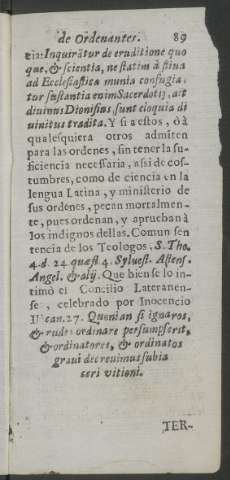 de Ordenantes. 89
cia: Inquirãtur de eruditione quo
que, & scientia, ne statim à stiua
ad Ecclesiastica munia confugia-
tur sustantia enim Sacerdotis, ait
diuinus Dionisius, sunt eloquia di
uinitus tradita. Y si aestos, ò à
qualesquiera otros admiten
para las ordenes, sin tener la su-
ficiencia necessaria, assi de cos-
tumbres, como de ciencia en la
lengua Latina, y ministerio de
sus ordenes, pecan mortalmen-
te, pues ordenan, y aprueban à
los indignos dellas. Comun sen
tencia de los Teologos, S. Tho.
4. d. 24 quæst 4. Syluest. Astens.
Angel. & alij. Que bien se lo in-
timò el Concilio Lateranen-
se, celebrado por Inocencio
III can. 27. Quonian si ignaros,
& rudes ordinare persumpserit,
& ordinatores, & ordinatos
graui decreuimus subia
seri vitioni.
TER-